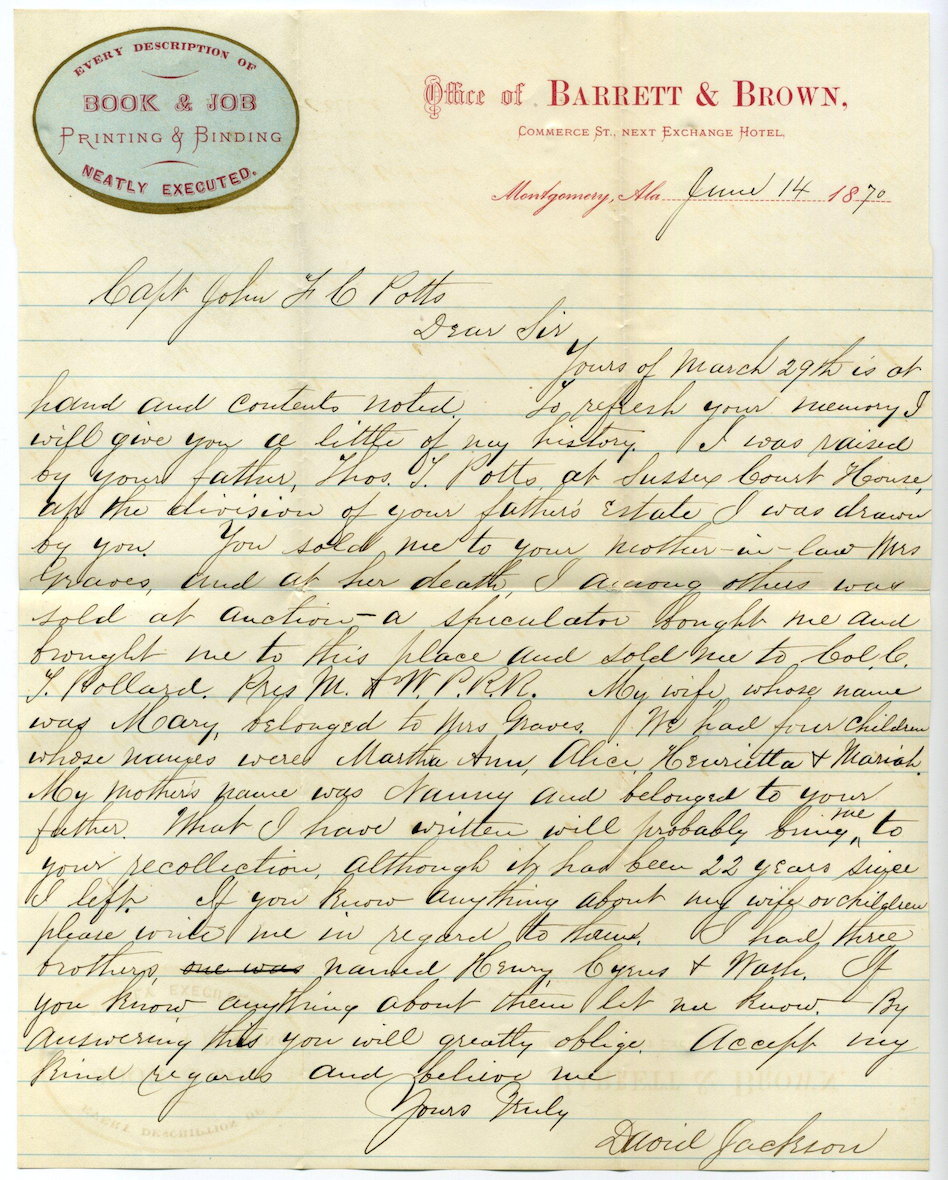 EVERY DESCRIPTION OF
BOOK & JOB
PRINTING & BINDING
NEATLY EXECUTED.
Office of BARRETT & BROWN,
COMMERCE ST., NEXT EXCHANGE HOTEL.
Montgomery, Ala. June 14 1870
Capt John F C Potts
Dear Sir
Yours of March 29th is at
hand and contents noted. To refresh your memory I
will give you a little of my history. I was raised
by your father, Thos. T. Potts, at Sussex Court House,
at the division of your father's Estate I was drawn
by you. You sold me to your mother-in-law Mrs
Graves, and at her death, I among others was
sold at auction - a speculator bought me and
brought me to this place and sold me to Col C.
T. Pollard. Pres M. & W. P. R. R. My wife, whose name
was Mary, belonged to Mrs Graves. We had four children
whose names were Martha Ann, Alice, Henrietta & Mariah.
My mother's name was Nanny and belonged to your
father. What I have written will probably bring me to
your recollection, although it has been 22 years since
I left. If you know anything about my wife or children
please write me in regard to them. I had three
brothers one was named Henry Cyrus & Wash. If
you know anything about them let me know. By
answering this you will greatly oblige. Accept my
kind regards and believe me
Yours Truly
David Jackson